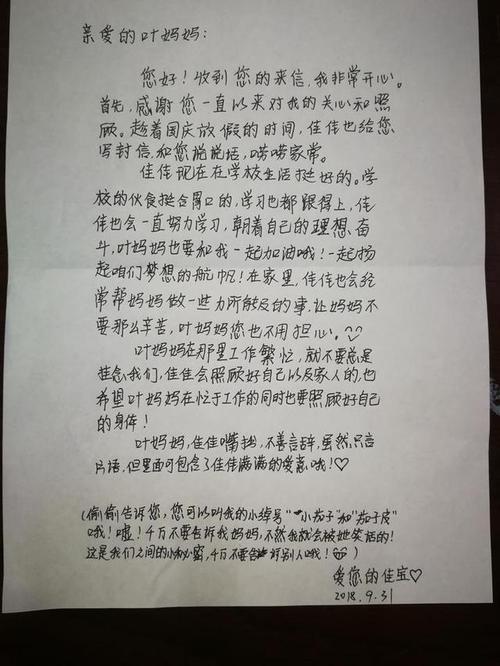 亲爱的叶妈妈：
您好！收到您的来信，我非常开心。
首先，感谢您一直以来对我的关心和照
顾。趁着国庆放假的时间，佳佳也给您
写封信，和您说说话，唠唠家常。
佳佳现在在学校生活挺好的。学
校的伙食挺合胃口的，学习也都跟得上，佳
佳也会一直努力学习，朝着自己的理想奋
斗，叶妈妈也要和我一起加油哦！一起扬
起咱们梦想的航帆！在家里，佳佳也会经
常帮妈妈做一些力所能及的事，让妈妈不
要那么辛苦，叶妈妈您也不用担心。♡♡
叶妈妈在那里工作繁忙，就不要总是
挂念我们，佳佳会照顾好自己以及家人的，也
希望叶妈妈在忙于工作的同时也要照顾好自己
的身体！
叶妈妈，佳佳嘴拙，不善言辞，虽然只言
片语，但里面可包含了佳佳满满的爱意哦！♡
（偷偷告诉您，您可以叫我的小绰号“小茄子”和“茄子皮”
哦！嘘！千万不要告诉我妈妈，不然我就会被她笑话的！
这是我们之间的小秘密，千万不要告诉别人哦！♡）
爱您的佳宝♡
2018.9.31